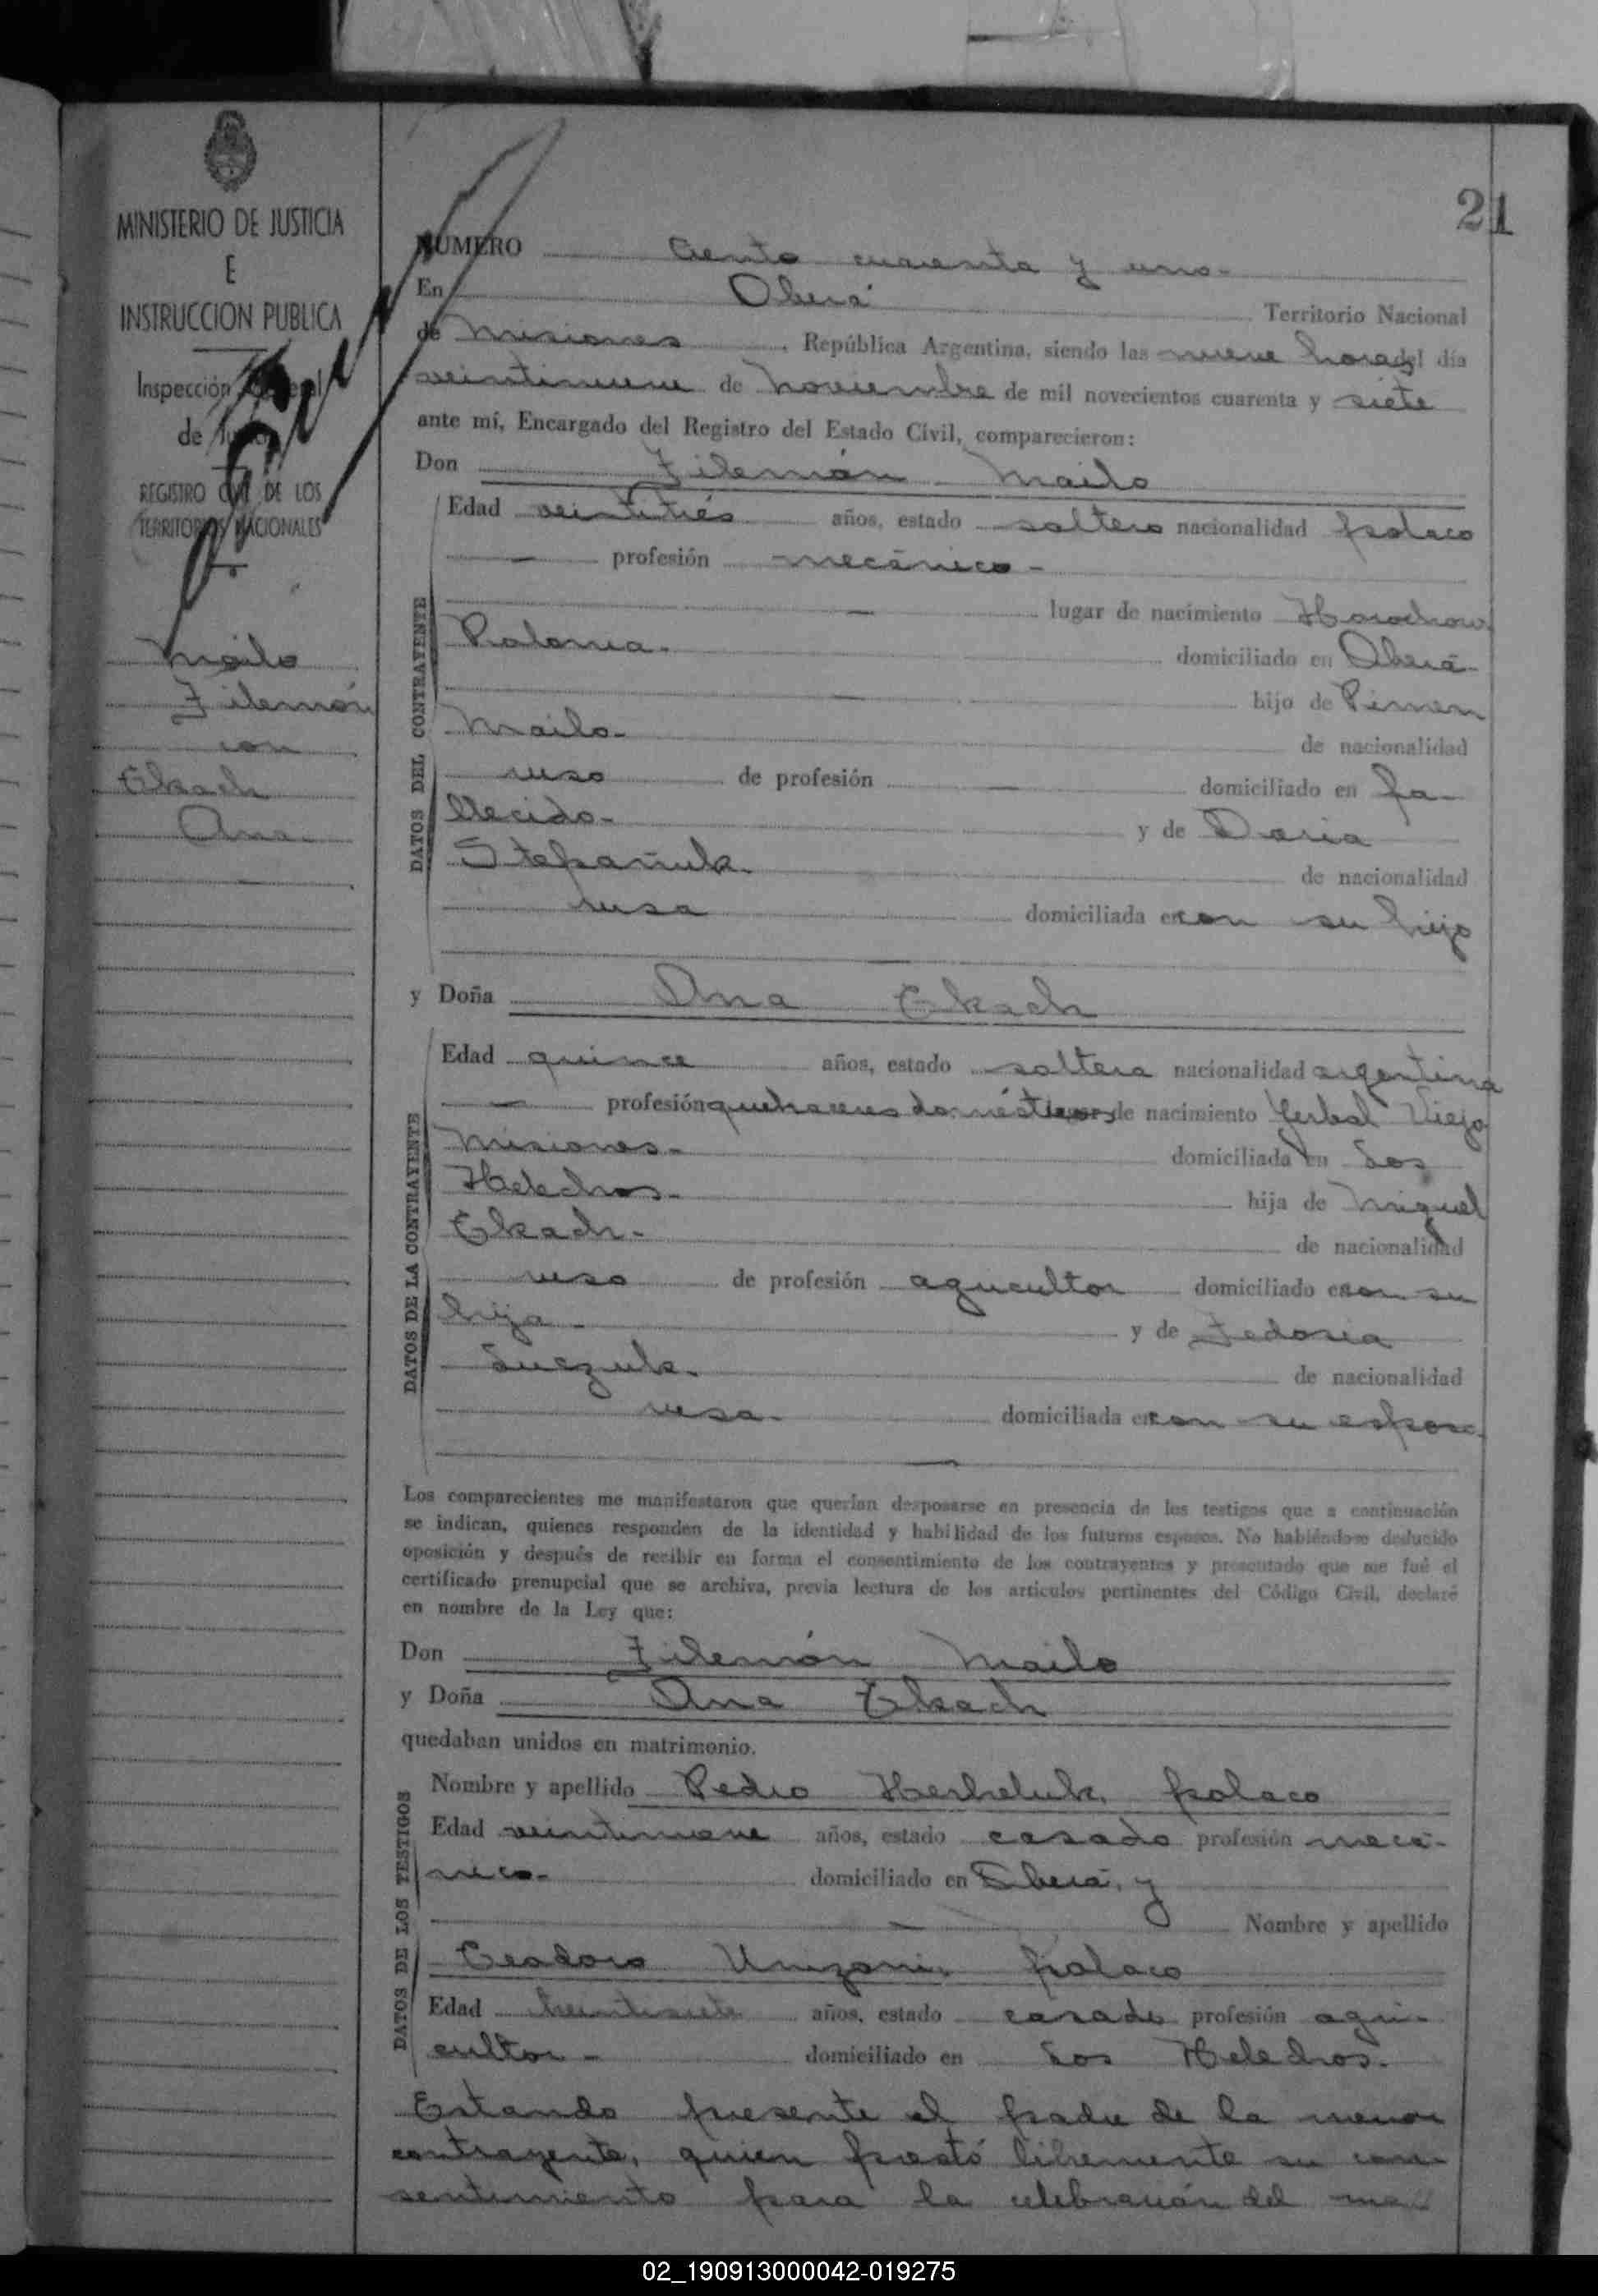 21
MINISTERIO DE JUSTICIA
E
INSTRUCCION PUBLICA
Inspección General
de Justicia
REGISTRO CIVIL DE LOS
TERRITORIOS NACIONALES
Mailo
Filemón
con
Tkach
Ana.
NUMERO Ciento cuarenta y uno.-
En Oberá Territorio Nacional
de Misiones, República Argentina, siendo las nueve horas del día
veintinueve de Noviembre de mil novecientos cuarenta y siete
ante mí, Encargado del Registro del Estado Civil, comparecieron:
Don Filemón Mailo
DATOS DEL CONTRAYENTE
Edad veintitrés años, estado soltero nacionalidad polaco
— profesión mecánico -
— lugar de nacimiento Horochow
Polonia. domiciliado en Oberá-
— hijo de Pimen
Mailo- de nacionalidad
ruso de profesión — domiciliado en fa-
llecido- y de Daria
Stepañuk. de nacionalidad
rusa domiciliada en con su hijo
—
y Doña Ana Tkach
DATOS DE LA CONTRAYENTE
Edad quince años, estado soltera nacionalidad argentina
— profesión quehaceres domésticos lugar de nacimiento Yerbal Viejo
Misiones- domiciliada en Los
Helechos- hija de Miguel
Tkach- de nacionalidad
ruso de profesión agricultor domiciliado en con su
hija - y de Fedosia
de nacionalidad
rusa- domiciliada en con su esposo.
—
Los comparecientes me manifestaron que querían desposarse en presencia de los testigos que a continuación
se indican, quienes responden de la identidad y habilidad de los futuros esposos. No habiéndose deducido
oposición y después de recibir en forma el consentimiento de los contrayentes y presentado que me fué el
certificado prenupcial que se archiva, previa lectura de los artículos pertinentes del Código Civil, declaré
en nombre de la Ley que:
Don Filemón Mailo
y Doña Ana Tkach
quedaban unidos en matrimonio.
DATOS DE LOS TESTIGOS
Nombre y apellido Pedro polaco
Edad veintinueve años, estado casado profesión mecá-
nico- domiciliado en Oberá, y
— Nombre y apellido
Teodoro polaco
Edad años, estado casado profesión agri-
cultor - domiciliado en Los Helechos.
Estando presente el padre de la menor
contrayente, quien prestó libremente su con-
sentimiento para la celebración del ma
02_190913000042-019275